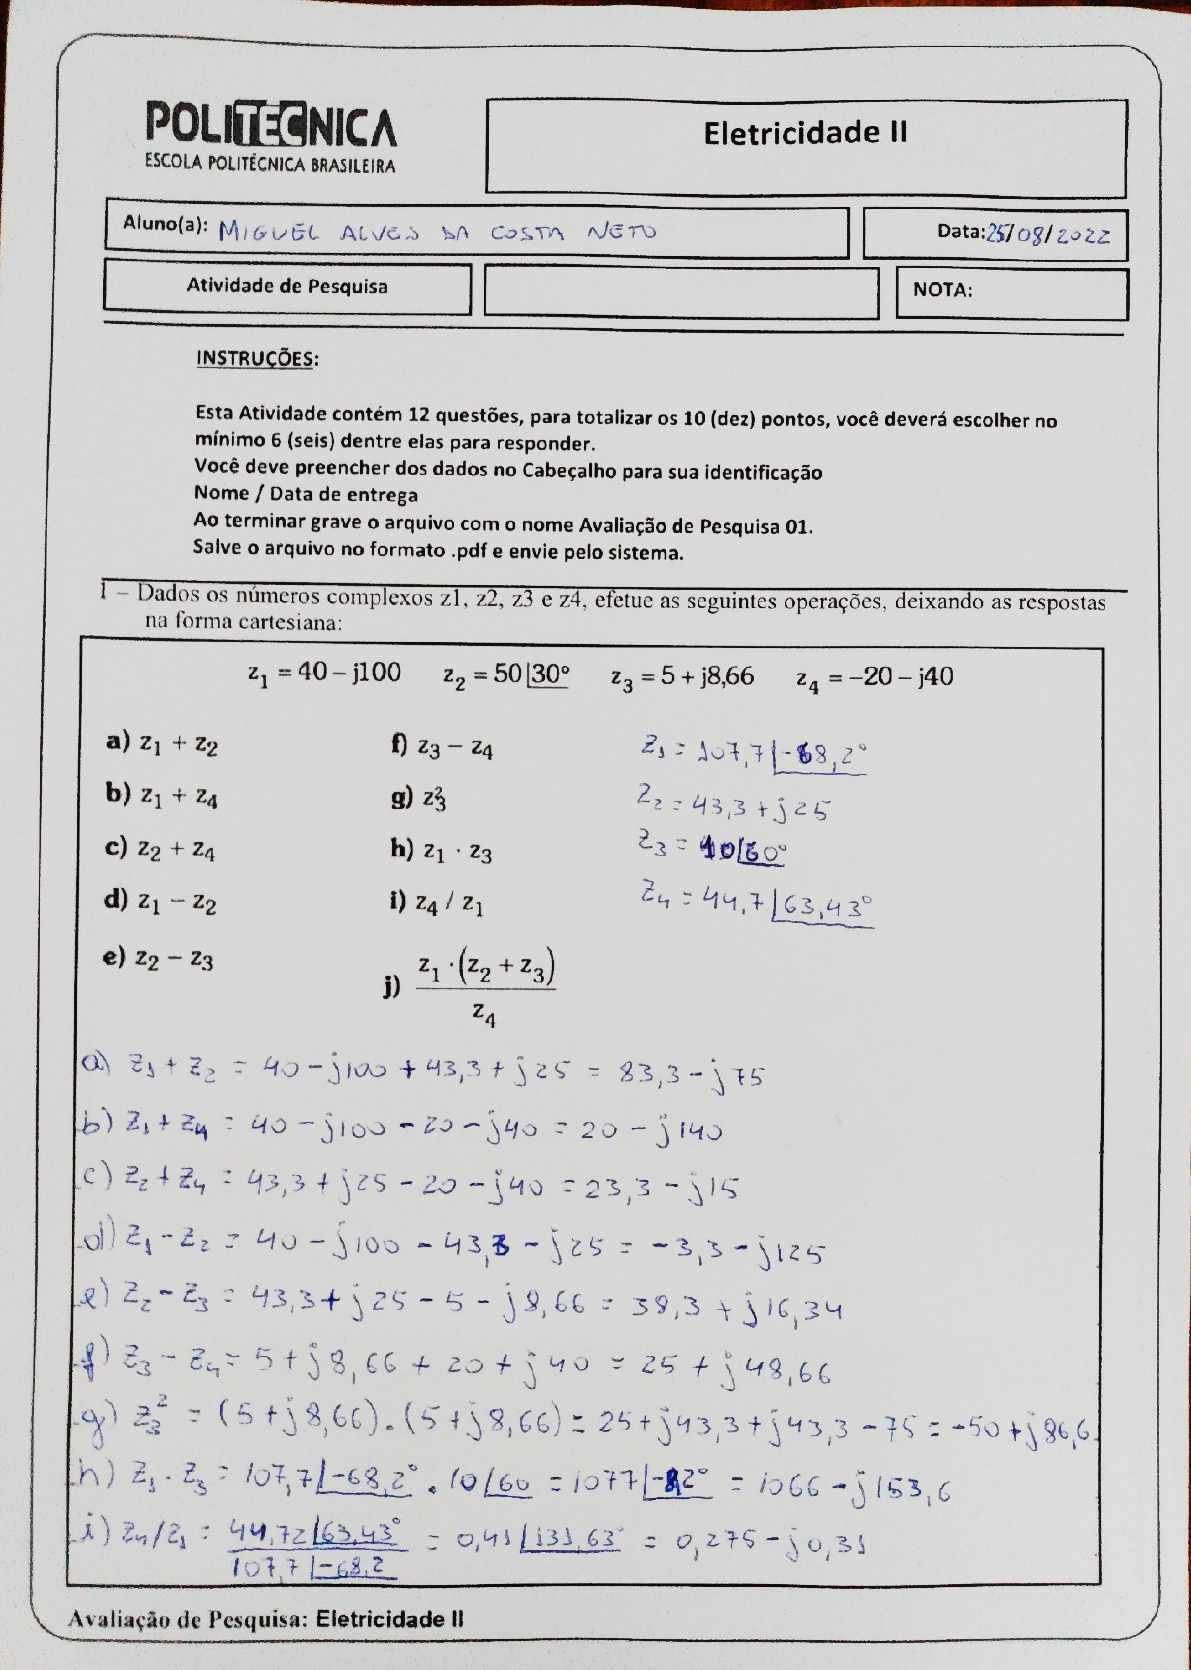 POLITECNICA
ESCOLA POLITÉCNICA BRASILEIRA
Eletricidade II
Aluno(a): MIGUEL ALVES DA COSTA NETO
Data:25/08/2022
Atividade de Pesquisa
NOTA:
INSTRUÇÕES:
Esta Atividade contém 12 questões, para totalizar os 10 (dez) pontos, você deverá escolher no
mínimo 6 (seis) dentre elas para responder.
Você deve preencher dos dados no Cabeçalho para sua identificação
Nome / Data de entrega
Ao terminar grave o arquivo com o nome Avaliação de Pesquisa 01.
Salve o arquivo no formato .pdf e envie pelo sistema.
1 – Dados os números complexos z1, z2, z3 e z4, efetue as seguintes operações, deixando as respostas
na forma cartesiana:
z₁ = 40 – j100 z₂ = 50|30° z₃ = 5 + j8,66 z₄ = –20 – j40
a) z₁ + z₂ f) z₃ – z₄ z₁ = 107,7|-68,2°
b) z₁ + z₄ g) z₃² z₂ = 43,3 + j25
c) z₂ + z₄ h) z₁ · z₃ z₃ = 10|60°
d) z₁ – z₂ i) z₄ / z₁ z₄ = 44,7|63,43°
e) z₂ – z₃ j) z₁ · (z₂ + z₃)
z₄
a) z₁ + z₂ = 40 - j100 + 43,3 + j25 = 83,3 - j75
b) z₁ + z₄ = 40 - j100 - 20 - j40 = 20 - j140
c) z₂ + z₄ = 43,3 + j25 - 20 - j40 = 23,3 - j15
d) z₁ - z₂ = 40 - j100 - 43,3 - j25 = -3,3 - j125
e) z₂ - z₃ = 43,3 + j25 - 5 - j8,66 = 38,3 + j16,34
f) z₃ - z₄ = 5 + j8,66 + 20 + j40 = 25 + j48,66
g) z₃² = (5 + j8,66).(5 + j8,66) = 25 + j43,3 + j43,3 - 75 = -50 + j86,6
h) z₁ . z₃ = 107,7|-68,2° . 10|60 = 1077|-8,2° = 1066 - j153,6
i) z₄/z₁ = 44,72|63,43° = 0,41|131,63° = 0,275 - j0,31
107,7|-68,2
Avaliação de Pesquisa: Eletricidade II